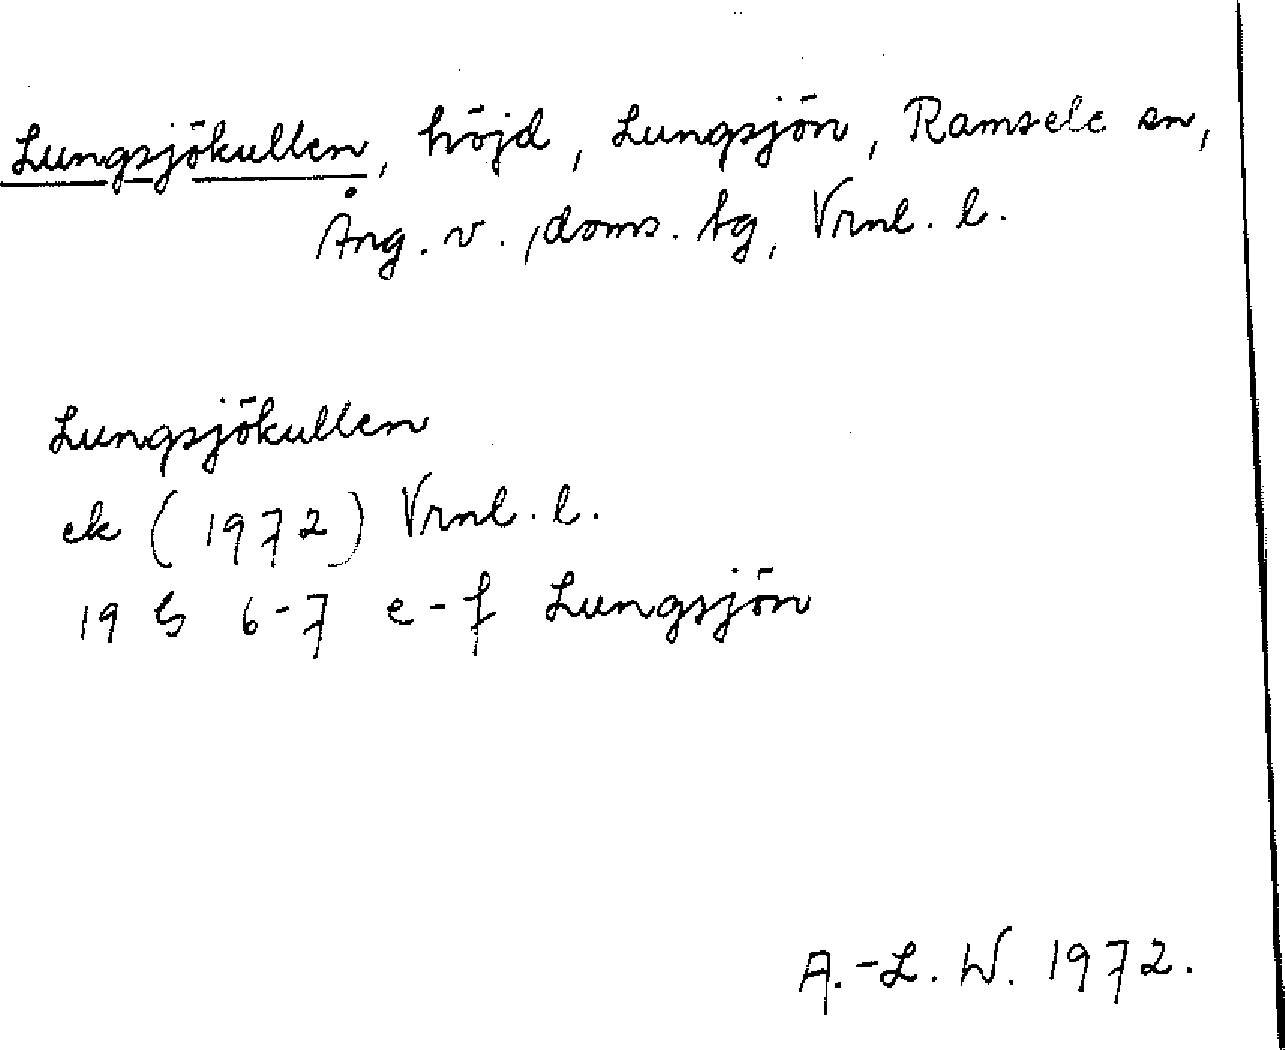 Lungsjökullen, höjd, Lungsjön, Ramsele sn,
Ång. v., doms. tg, Vrnl. l.
Lungsjökullen
ek (1972) Vrnl. l.
19 G 6-7 e-f Lungsjön
A.-L. W. 1972.